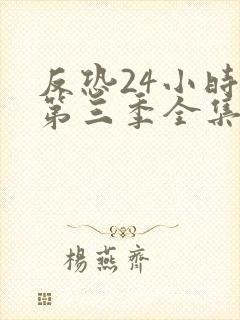 反恐24小時
第三季全集
楊燕齊